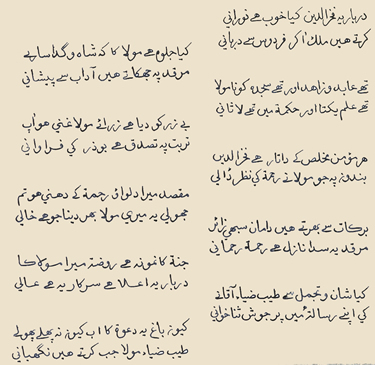 دربار یہ فخرالدین کیا خوب ہے نورانی
کرتے ھیں ملک آ کر فردوس سے دربانی
تھے عابد و زاھد اور تھے سجدہ کناں مولا
تھے علم یکتا اور حکمۃ میں تھے لاثانی
ھر مؤمن مخلص کے داتار ھے فخرالدین
بندو پہ جو مولانے رحمۃ کی نظر ڈالی
برکات سے بھرتے ھیں دامان سبھی زائر
مرقد پہ سدا نازل ھے رحمۃ رحمانی
کیا شان و تجمل سے طیب ضیاء آقانے
کی اپنے رسالۃ میں پرجوش ثنا خوانی
کیا جلوہ ھے مولا کا کہ شاہ و گدا سارے
مرقد پہ جھکاتے ھیں آداب سے پیشانی
بے زر کو دیا ھے زر ائے مولا غنی ھو آپ
تربت پہ تصدق ھے بوذر کی فراوانی
مقصد میرا دلواؤ رحمۃ کے دھنی ھو تم
جھولی یہ میری مولا بھر دینا جو ھے خالی
جنۃ کا نمونہ ھے روضۃ میرا مولا کا
دربار یہ اعلا ھے سرکار یہ ھے عالی
کیوں باغ یہ دعوۃ کا اب کیوں نہ پھلے پھولے
طیب ضیاء مولا جب کرتے ھیں نگھبانی